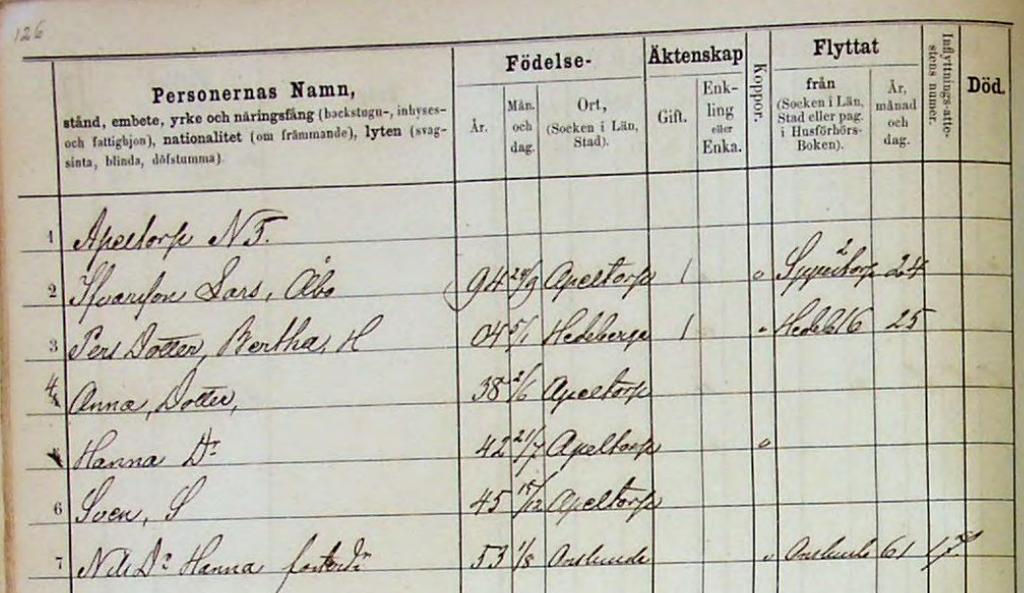 126
Personernas Namn,
stånd, embete, yrke och näringsfång (backstugu-, inhyses-
och fattighjon), nationalitet (om främmande), lyten (svag-
sinta, blinda, döfstumma).
Födelse-
År.
Mån. och dag.
Ort,
(Socken i Län,
Stad).
Äktenskap
Gift.
Enk-
ling
eller
Enka.
Koppor.
Flyttat
från
(Socken i Län,
Stad eller pag.
i Husförhörs-
Boken).
År,
månad
och
dag.
Inflyttnings-atte-
stens numer.
Död.
1 Apeltorp N
2 Lars, Åbo 94 Apeltorp 1 o 24
3 Pers Dotter, Bertha, H 04 5/1 Hedeberga 1 25
4 Anna, Dotter, 38 2/6 Apeltorp
Hanna Dr 42 21/7 Apeltorp o
6 Sven, S 45 Apeltorp
7 Hanna 53 1/8 61